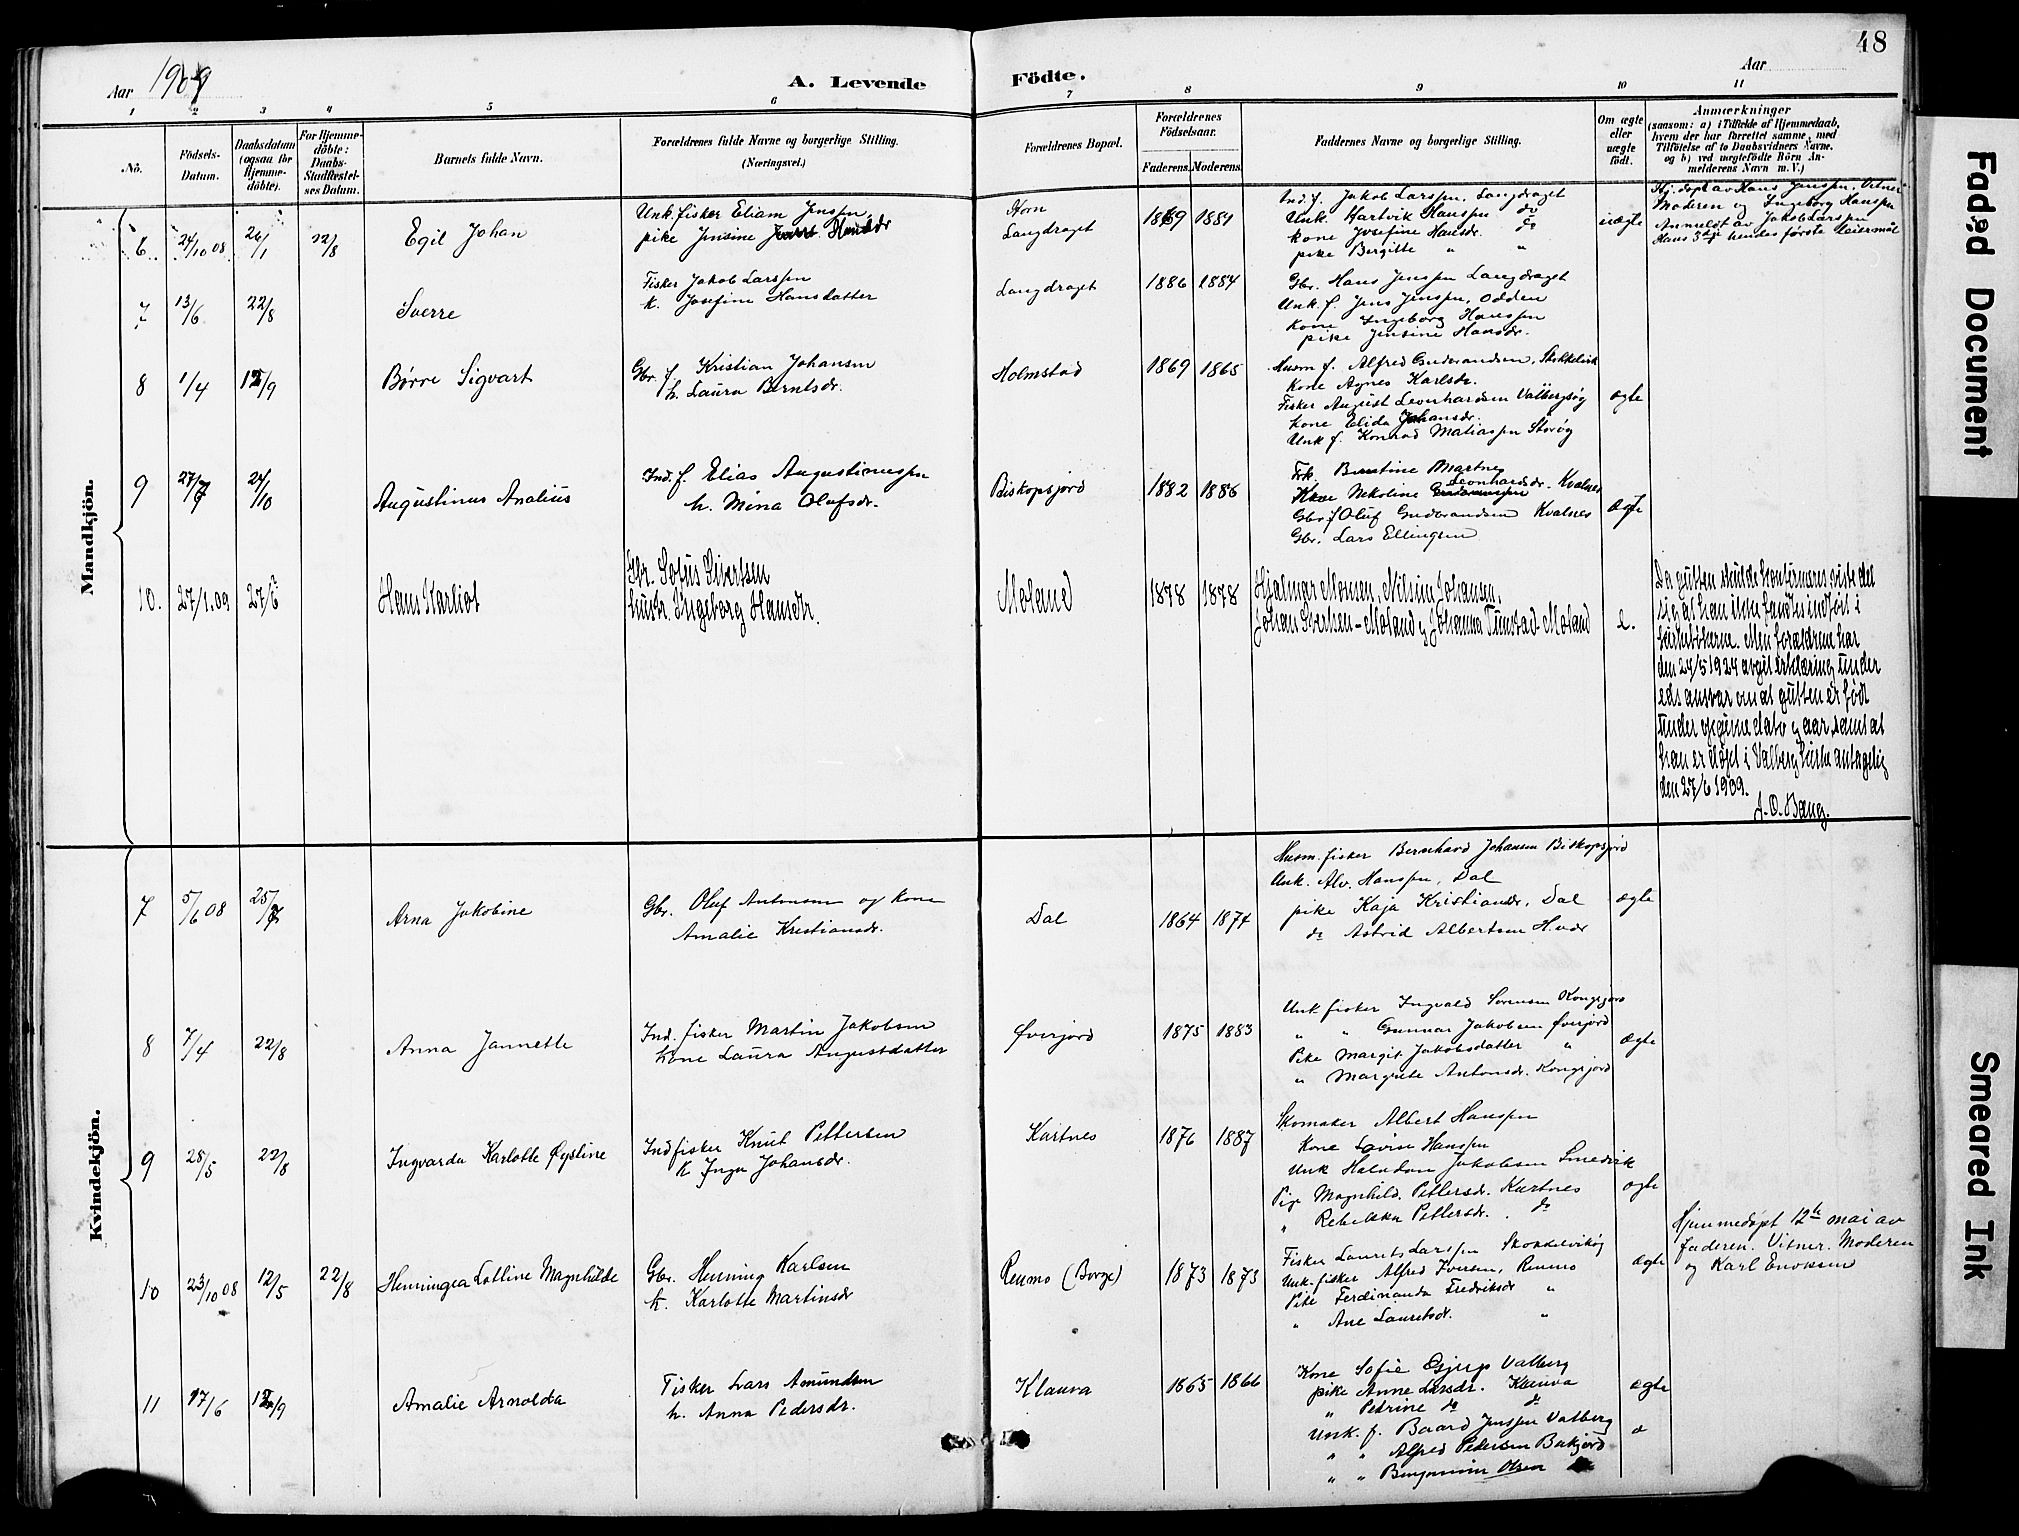 48
Aar 1909
A. Levende Födte.
Aar
1 2 3 4 5 6 7 8 9 10 11
No.
Födsels-Datum.
Daabsdatum (ogsaa for Hjemme-döbte).
For Hjemme-döbte: Daabs-Stadfæstel-ses Datum.
Barnets fulde Navn.
Forældrenes fulde Navne og borgerlige Stilling. (Næringsvei.)
Forældrenes Bopæl.
Forældrenes Födselsaar.
Faderens. Moderens.
Faddernes Navne og borgerlige Stilling.
Om ægte eller uægte födt.
Anmærkninger
(saasom: a) i Tilfælde af Hjemmedaab,
hvem der har forrettet samme, med
Tilföielse af to Daabsvidners Navne.
og b) ved uægtefödte Börn An-
melderens Navn m. V.)
Mandkjön.
6 24/10 08 26/1 22/8 Egil Johan
Unk. fisker Eliam Jensen,
pike Jensine Hansdr
Horn
Langdraget
1869 1884
Ind. f. Jakob Larssen, Langdraget
Unk. Hartvik Hanssen do
Kone Josefine Hansdr. do
pike Bergitte " "
uægte
Hj. døpt av Hans Jenssen, Vitner
Moderen og Ingeborg Hanssen
Anmeldt av Jakob Larssen
Hans 3die hendes første leiermål
7 13/6 22/8 Sverre
Fisker Jakob Larssen
k. Josefine Hansdatter
Langdraget
1886 1884
Gbr. Hans Jenssen Langdraget
Unk. f. Jens Jenssen, Odden
Kone Ingeborg Hanssen
pike Jensine Hansdr.
8 1/4 12/9 Børre Sigvart
Gbr. f. Kristian Johansen
h. Laura Berntsdr.
Holmstad
1869 1865
Husm f. Alfred Gudbrandsen, Skokkelvik
Kone Agnes Karlsdr.
Fisker August Leonhardsen Valbergsøg
Kone Elida Johansdr.
Unk f. Konrad Matiassen Storøg
ægte
9 27/7 24/10 Augustinus Analius
Ind. f. Elias Augustinussen
h. Mina Olufsdr.
Biskopsjord
1882 1886
Frk. Berntine Martnes
Kone Nekoline Leonhardsdr. Kvalnes
Gbr. f Oluf Gudbrandsen Kvalnes
Gbr. Lars Ellingsen
ægte
10. 27/1.09 27/6 Hans Karliot
Gbr. Sofus Sivertsen
hustr. Ingeborg Hansdr.
Moland
1878 1878
Hjalmar Monsen, Nilsine Johansen,
Johan Sivertsen-Moland og Johanna Tunstad-Moland
e.
Da gutten skulde konfirmeres viste det
sig at han ikke fandtes indført i
kirkebökerne. Men forældrene har
den 24/5 1924 avgit erklæring under
eds ansvar om at gutten er født
under opgivne dato og aar, samt at
han er døpt i Valberg kirke antagelig
den 27/6 1909.
A. O. Bang.
Kvindekjön.
7 5/6 08 25/7 Arna Jakobine
Gbr. Oluf Antonsen og kone
Amalie Kristiansdr.
Dal
1864 1874
Husm. fisker Bernhard Johansen Biskopsjord
Unk. Alv. Hanssen, Dal
pike Kaja Kristiansdr, Dal
do Astrid Albertsen Hvdr
ægte
8 7/4 22/8 Anna Jannette
Ind. fisker Martin Jakobsen
kone Laura Augustdatter
Øverjord
1875 1883
Unk fisker Ingvald Sørensen Kongsjord
" " Gunnar Jakobsen Øverjord
Pike Margit Jakobsdatter "
" Margrete Antonsdr. Kongsjord
ægte
9 28/5 22/8 Ingvarda Karlotte Øystine
Ind fisker Knut Pettersen
K Inga Johansdr.
Kartnes
1876 1887
Skomaker Albert Hanssen
Kone Lovise Hanssen
Unk Halvdan Jakobsen Smedvik
Pige Magnhild Pettersdr. Kartnes
" Rebekka Pettersdr. do
ægte
10 23/10 08 12/5 22/8 Henningea Lolline Magnhilde
Gbr. Henning Karlsen
k. Karlotte Martinsdr
Reumo (Borge)
1873 1873
Fisker Laurets Larssen Skokkelvikøg
Unk. fisker Alfred Iversen, Reumo
Pike Ferdinanda Fredriksdr "
" Ane Lauretsdr. "
ægte
Hjemmedøpt 12te mai av
faderen. Vitner. Moderen
og Karl Enoksen
11 17/6 12/9 Amalie Arnolda
Fisker Lars Amundsen
h. Anna Pedersdr.
Klauva
1865 1866
Kone Sofie Gjerp Valberg
pike Anne Larsdr. Klauva
" Petrine do do
Unk. f. Baard Jenssen Valberg
" " Alfred Pedersen Bakjord
" " Benjamin Olsen
ægte
Faded Document
Smeared Ink